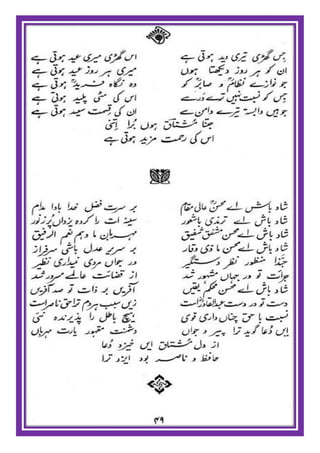 جس گھڑی تیری دید ہوتی ہے اس گھڑی میری عید ہوتی ہے
ان کو ہر روز دیکھتا ہوں میری ہر روز عید ہوتی ہے
جو نوازے نظامؒ و صابرؒ کو وہ نگاہ فریدؒ ہوتی ہے
جس کو نسبت نہیں ترے در سے اس کی مٹی پلید ہوتی ہے
جو ہیں وابستہ تیرے دامن سے ان کی قسمت سعید ہوتی ہے
جتنا مشتاق ہوں بُرا اتنی
اس کی رحمت مزید ہوتی ہے
شاد باش اے محسن عالی مقام بر سرت فضل خدا بادا مدام
شاد باش اے ترمذی باشعور سینہ ات را کردہ یزداں پُر ز نور
شاد باش اے محسن مشفق شفیق مہرباں ما و ہم نعم الرفیق
شاد باش اے محسن ما ذی وقار بر سریر عدل باشی سرفراز
منظور نظر دستگیر در جواں مردی نمیداری نظیر
تو در جہاں مشہور شد از عالمے مسرور شد
شاد باش اے محسن محکم یقیں آفریں بر ذات تو صد آفریں
دست تو در دست عبدالقادر است زیں سبب ہر دم ترا حق ناصر است
نسبت با حق چناں داری قوی ہیچ باطل را پذیرندہ نئی
ایں دعا گوید ترا پیر و جواں دشمنت مقہور یارت مہرباں
از دل مشتاق ایں خیزد دعا
حافظ و ناصر بود ایزد ترا
۴۹